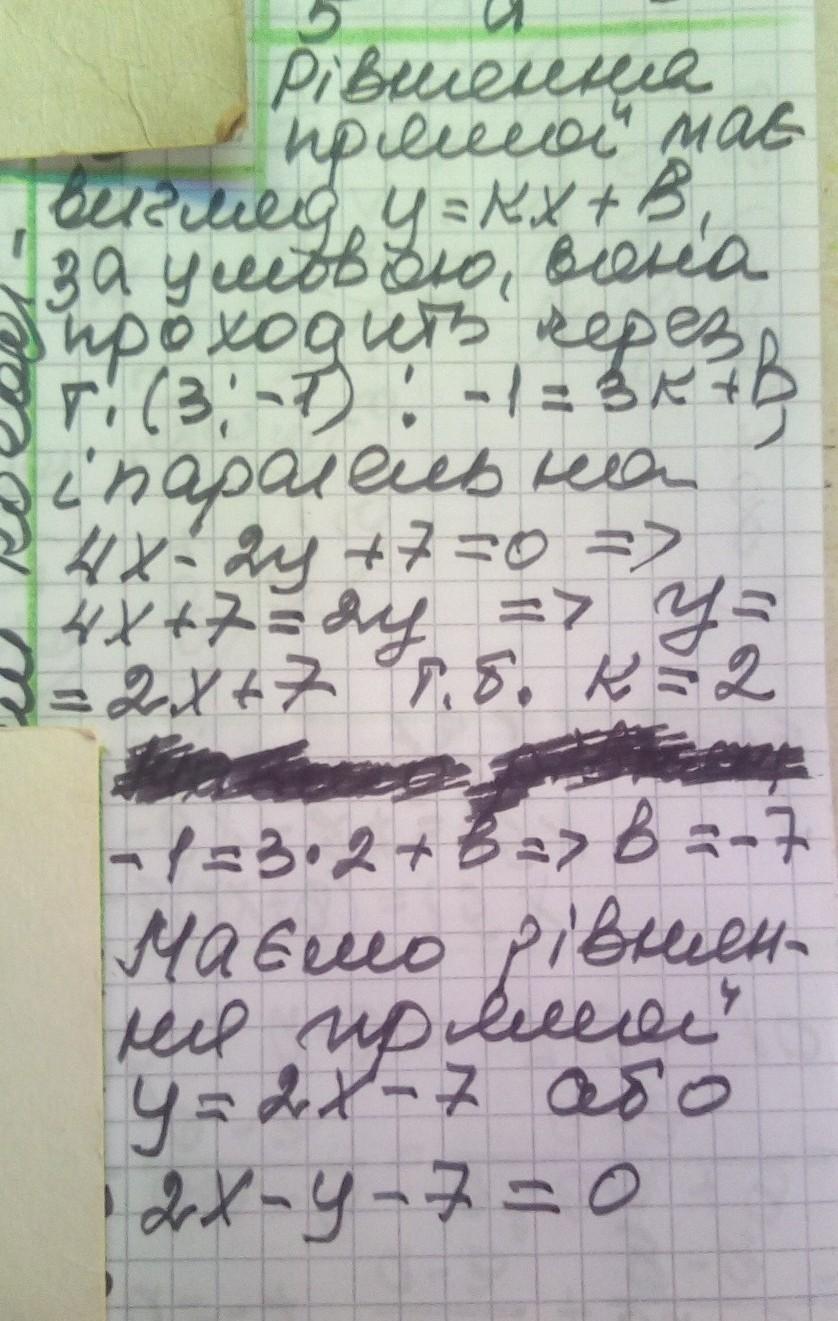 Рівняння
прямої має
вигляд y = kx + B,
за умовою, вона
проходить через
т. (3; -1) : -1 = 3k + B,
і паралельна
4x - 2y + 7 = 0 =>
4x + 7 = 2y => y =
= 2x + 7 т.б. k = 2
-1 = 3·2 + B => B = -7
Маємо рівнян-
ня прямої
y = 2x - 7 або
2x - y - 7 = 0